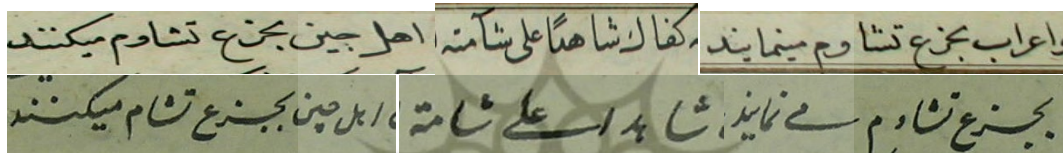 واعراب بجزع تشاوم مینمایند کفاک شاهدًا علی شآمته اهل چین بجزع تشاوم میکنند
بجزع تشاوم مے نمایند شاہد اً علے شامتہ اہل چین بجزع تشام میکنند